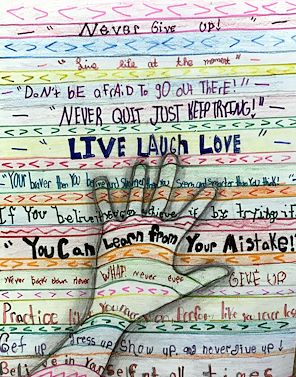 "Never Give up!"
"Live life at the moment"
"Don't be afraid to go out there!!"
"NEVER QUIT JUST KEEP TRYING!"
"LIVE LAUGH LOVE"
"YOUR braver than You believe and Stronger than you Seem and Smarter than You think!"
If You believe achieve it by trying it
"You Can Learn from Your Mistake!"
Never back down never WHAT never ever GIVE UP
Practice like You never like you never
Get up dress up show up and never give up!
Believe in Yourself at all times